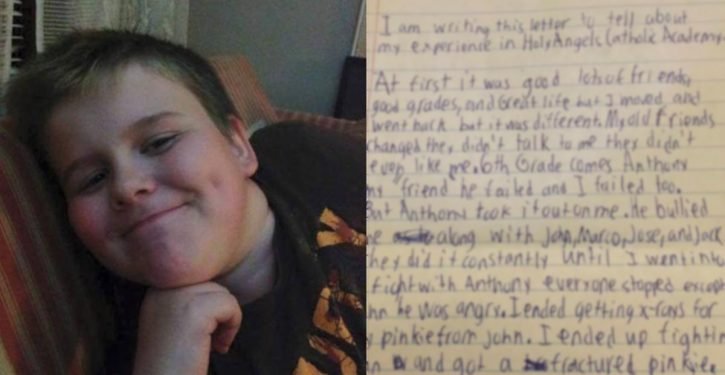 I am writing this letter to tell about
my experience in Holy Angels Catholic Academy.
At first it was good lots of friends,
good grades, and Great life but I moved and
went back but it was different. My old friends
changed they didn't talk to me they didn't
even like me. 6th Grade comes Anthony
my friend he failed and I failed too.
But Anthony took it out on me. He bullied
me along with John, Marco, Jose, and Jack
they did it constantly Until I went into
fight with Anthony everyone stopped except
he was angry. I ended getting x-rays for
pinkie from John. I ended up fighting
and got a fractured pinkie.